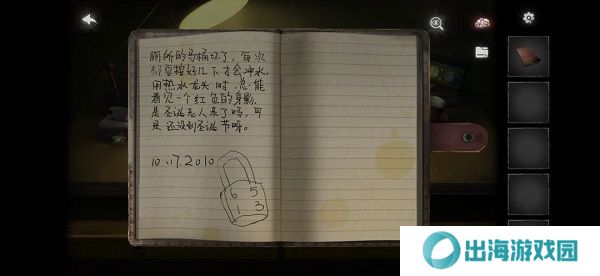 厕所的马桶坏了，每次
都要按好几下才会冲水，
用热水龙头时，总能
看见一个红色的身影，
是圣诞老人来了吗，可
是还没到圣诞节呀。
10.17.2010
6 5
1 3
出海游戏园